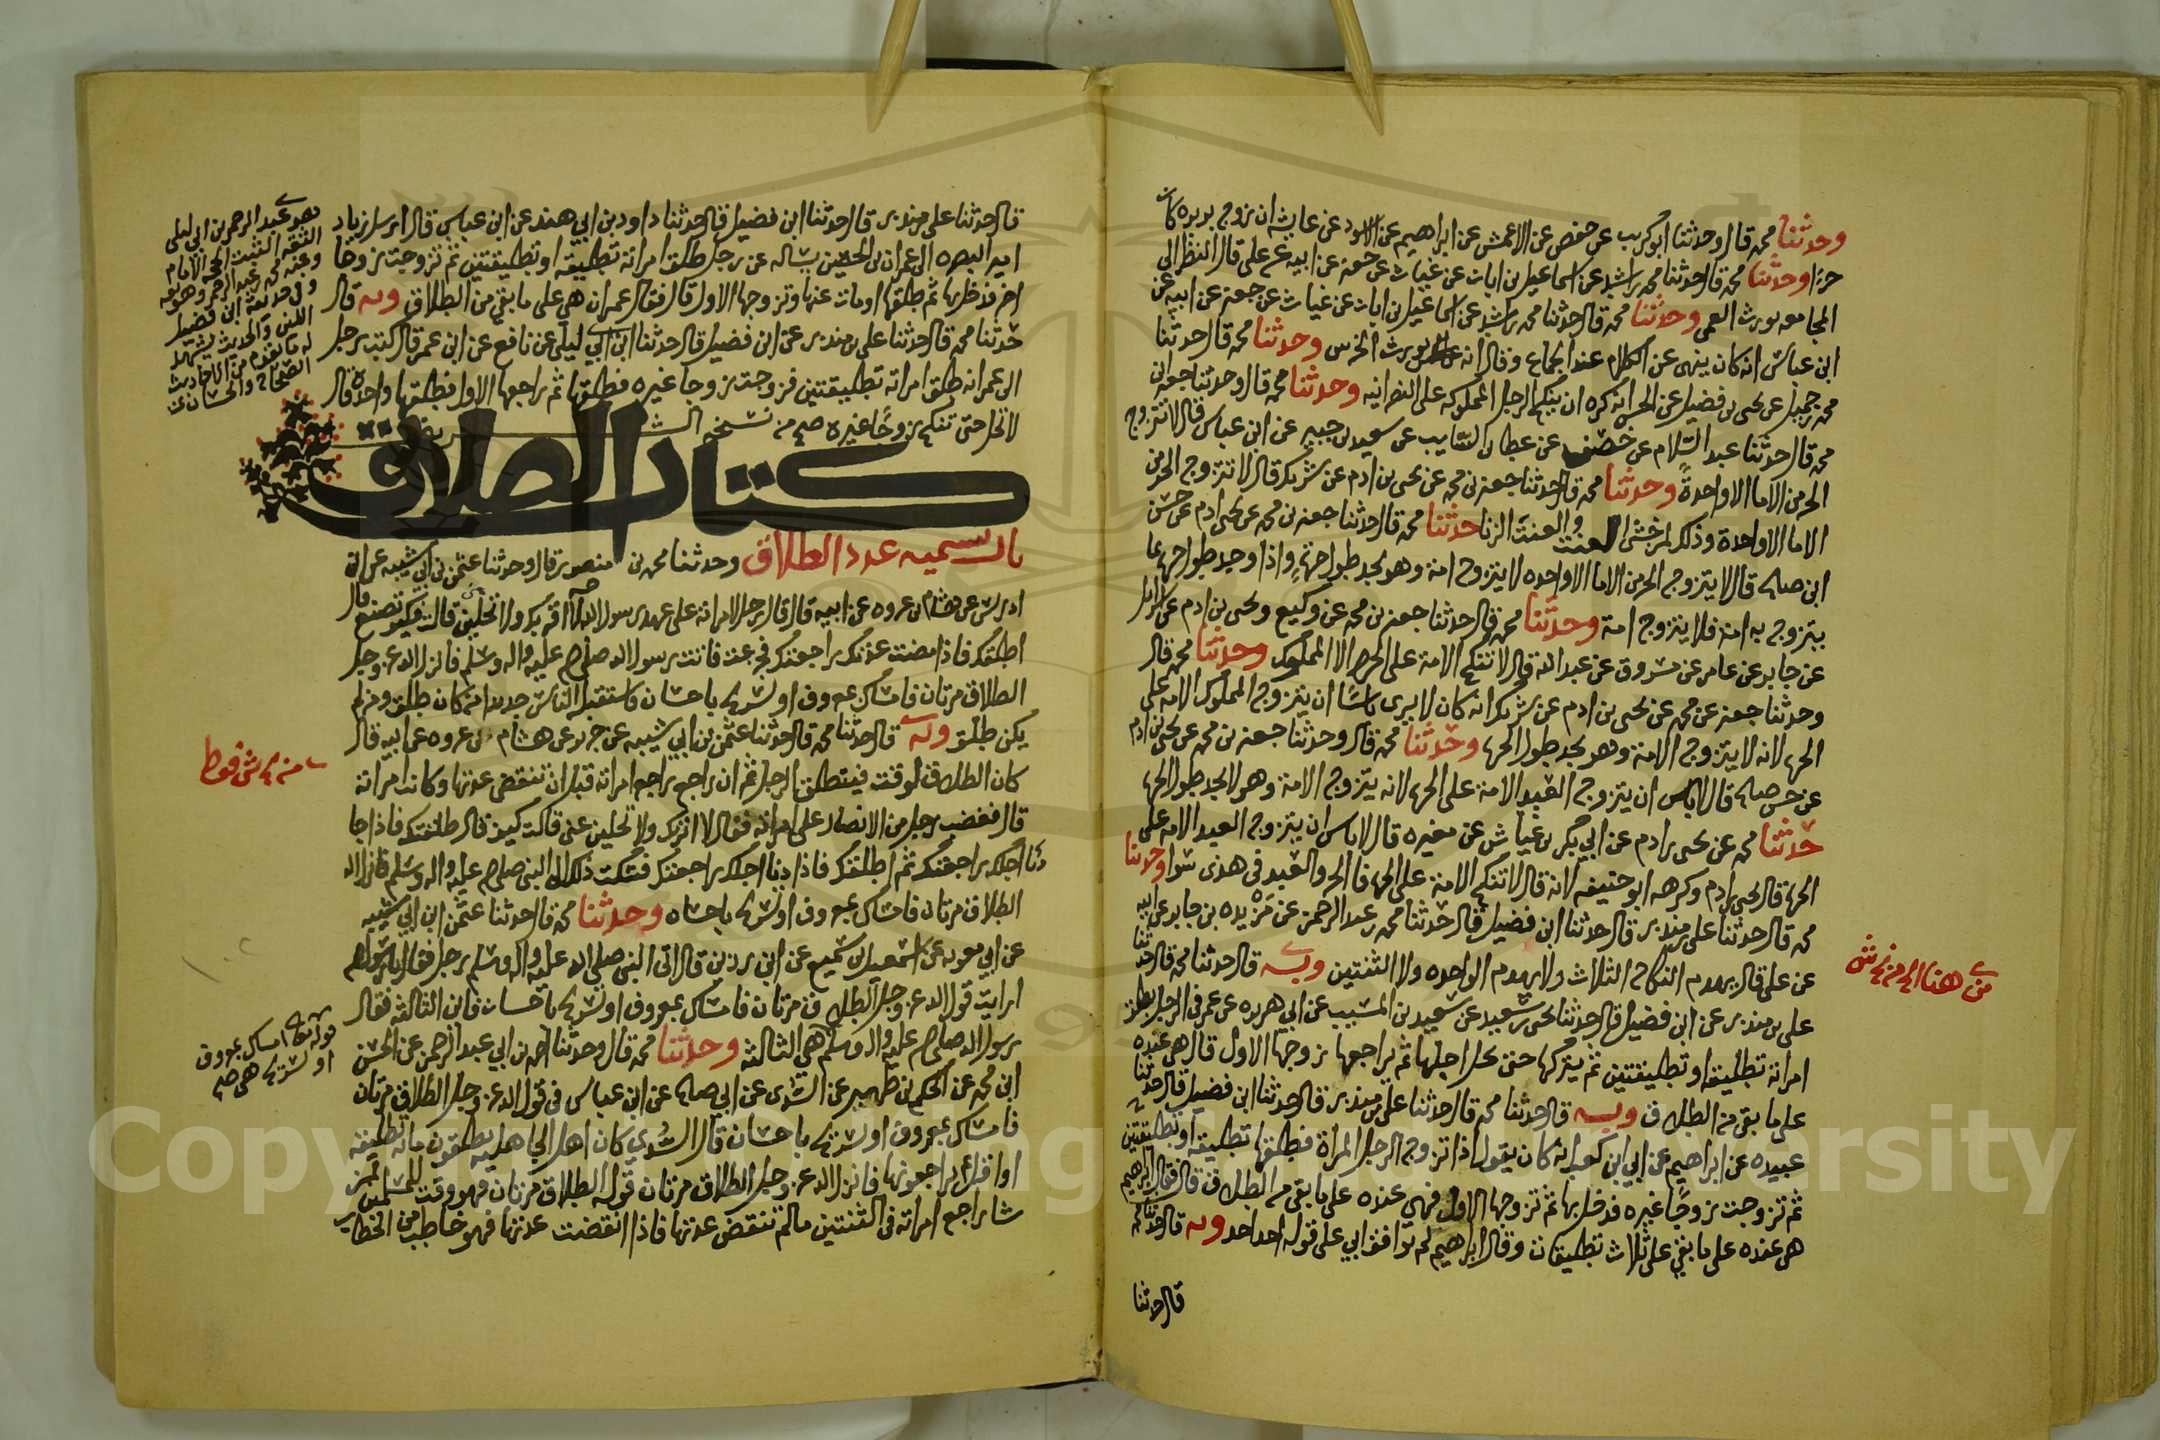 وحدثنا محمد قال وحدثنا ابو كريب عن حفص عن الاعمش عن ابراهيم عن الاسود عن عايشه ان زوج بريره كان
حرا وحدثنا محمد قال حدثنا محمد بن راشد عن اسماعيل بن ابان عن غياث عن جعفر عن ابيه عن علي قال النظر الى
المجامعه يورث العمى وحدثنا محمد قال حدثنا محمد بن راشد عن اسماعيل بن ابان عن غياث عن جعفر عن ابيه عن
ابن عباس انه كان ينهى عن الكلام عند الجماع وقال انه يورث الخرس وحدثنا محمد قال حدثنا
محمد بن جميل عن يحيى بن فضيل عن الحسن انه كره ان ينكح الرجل المملوكه على النصرانيه وحدثنا محمد قال وحدثنا جعفر بن
محمد قال حدثنا عبد السلام عن خصيف عن عطا بن السايب عن سعيد بن جبير عن ابن عباس قال لا تتزوج
الحر من الاما الا واحدة وحدثنا محمد قال حدثنا جعفر بن محمد عن يحيى بن ادم عن شريك قال لا تتزوج الحر من
الاما الا واحدة وذلك لمن خشي العنت والعنت الزنا حدثنا محمد قال حدثنا جعفر بن محمد عن يحيى بن ادم عن حسن
ابن صلح قال لا يتزوج الحر من الاما الا واحده لا يتزوج امة وهو يجد طول حرة واذا وجد طول حرة ما
يتزوج به امة فلا يتزوج امة وحدثنا محمد قال حدثنا جعفر بن محمد عن وكيع ويحيى بن ادم عن اسرايل
عن جابر عن عامر عن مسروق عن عبد الله قال لا تنكح الامة على الحره الا المملوك وحدثنا محمد قال
وحدثنا جعفر عن محمد عن يحيى بن ادم عن شريك انه كان لا يرى باسًا ان يتزوج المملوك الامة على
الحره لانه لا يتزوج الامة وهو يجد طول الحره وحدثنا محمد قال وحدثنا جعفر بن محمد عن يحيى بن ادم
عن حسن صلح قال لا باس ان يتزوج العبد الامة على الحره لانه يتزوج الامة وهو لا يجد طول الحره
حدثنا محمد عن يحيى بن ادم عن ابي بكر بن عياش عن مغيره قال لا باس ان يتزوج العبد الامه على
الحرة قال يحيى بن ادم وكرهه ابو حنيفه لانه قال لا تنكح الامة على الحره فالحر والعبد في هذى سوا وحدثنا
محمد قال حدثنا علي بن منذر قال حدثنا ابن فضيل قال حدثنا محمد بن عبد الرحمن عن مزيده بن جابر عن ابيه
عن علي قال يهدم النكاح الثلاث ولا يهدم الواحده ولا الثنتين وبه قال حدثنا محمد قال حدثنا
علي بن منذر عن ابن فضيل قال حدثنا يحيى بن سعيد عن سعيد بن المسيب عن ابي هريره عن عمر في الرجل يطلق
امراته تطليقة او تطليقتين ثم يتركها حتى يحل اجلها ثم يراجعها زوجها الاول قال هي عنده
على ما بقي من الطلاق وبه قال حدثنا محمد قال حدثنا علي بن منذر قال حدثنا ابن فضيل قال حدثنا
عبيده عن ابراهيم عن ابي بن كعب انه كان يقول اذا تزوج الرجل المراة فطلقها تطليقة او تطليقتين
ثم تزوجت زوجًا غيره فدخل بها ثم تزوجها الاول فهي عنده على ما بقي من الطلاق قال فقال ابراهيم
هي عنده على ما بقي على ثلاث تطليقات وقال ابراهيم لم يوافق ابي على قوله احد احد وبه قال حدثنا محمد
قال حدثنا
من هنا الى
قال حدثنا علي بن منذر قال حدثنا ابن فضيل قال حدثنا داود بن ابي هند عن ابن عباس قال ارسل زياد
امير البصره الى عمران بن الحصين يساله عن رجل طلق امراته تطليقه او تطليقتين ثم تزوجت زوجا
اخر فدخل بها ثم طلقها او مات عنها وتزوجها الاول قال فقال عمران هي على ما بقي من الطلاق وبه قال
حدثنا محمد قال حدثنا علي بن منذر عن ابن فضيل قال حدثنا ابن ابي ليلى عن نافع عن ابن عمر قال كتب رجل
الى عمر انه طلق امراته تطليقتين فتزوجت زوجا غيره فطلقها ثم راجعها الاول فطلقها واحدة قال
لا تحل حتى تنكح زوجًا غيره صح من نسخة
كتاب الطلاق
باب تسميه عدد الطلاق وحدثنا محمد بن منصور قال وحدثنا عثمن بن ابي شيبه عن ابن
ادريس عن هشام بن عروه عن ابيه قال قال رجل لامراته على عهد رسول الله لا اقربك ولا تحلين قالت وكيف تصنع قال
اطلقك فاذا مضت عدتك راجعتك فجزعت فاتت رسول الله صلى الله عليه واله وسلم فانزل الله عز وجل
الطلاق مرتان فامساك بمعروف او تسريح باحسان فاستقبل الناس جديدا من كان طلق ومن لم
يكن طلق وبه قال حدثنا محمد قال حدثنا عثمن بن ابي شيبه عن جرير عن هشام بن عروه عن ابيه قال
كان الطلاق لا وقت فيتطلق الرجل ثم ان راجع راجع امراته قبل ان تنقضي عدتها وكانت امراته
قال فغضب رجل من الانصار على امراته فقال لا اقربك ولا تحلين عني قالت كيف قال طلقتك فاذا جا
دنا اجلك راجعتك ثم اطلقك فاذا دنا اجلك راجعتك فشكت ذلك الى النبي صلى الله عليه واله وسلم فانزل الله
الطلاق مرتان فامساك بمعروف او تسريح باحسان وحدثنا محمد قال حدثنا عثمن ابن ابي شيبه
عن ابي معويه عن اسمعيل بن سميع عن ابي رزين قال اتى النبي صلى الله عليه واله وسلم رجل فقال يا رسول الله
ارايت قول الله عز وجل الطلاق مرتان فامساك بمعروف او تسريح باحسان فاين الثالثه فقال
رسول الله صلى الله عليه واله وسلم هي الثالثه وحدثنا محمد قال وحدثنا احمد بن ابي عبد الرحمن عن الحسن
ابن محمد عن الحكم بن ظهير عن السدي عن ابي صلح عن ابن عباس في قول الله عز وجل الطلاق مرتان
فامساك بمعروف او تسريح باحسان قال السدي كان اهل الجاهليه يطلقون مائه تطليقه
او اقل او راجعوها فانزل الله عز وجل الطلاق مرتان قوله الطلاق مرتان فهو وقت للمسلمين لمن
شا راجع امراته في الثنتين مالم تنقض عدتها فاذا انقضت عدتها فهو خاطب من الخطاب
هو عبد الرحمن بن ابي ليلى
الثقه الثبت الحجه الامام
قوله تعالى امساك بمعروف
او تسريح هي صح